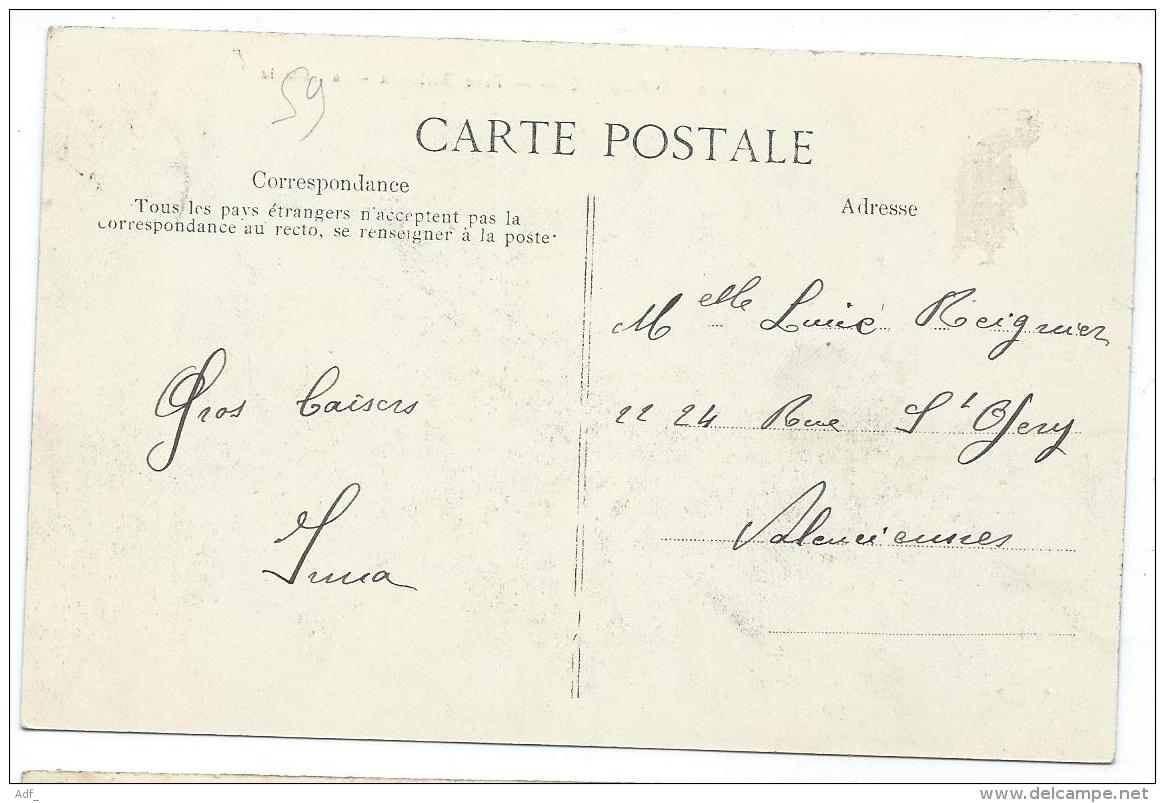 59
CARTE POSTALE
Correspondance
Tous les pays étrangers n'acceptent pas la
correspondance au recto, se renseigner à la poste.
Adresse
Melle Reignier
22 24 Rue St Géry
Valenciennes
Gros baisers
Irma
Adf_
www.delcampe.net